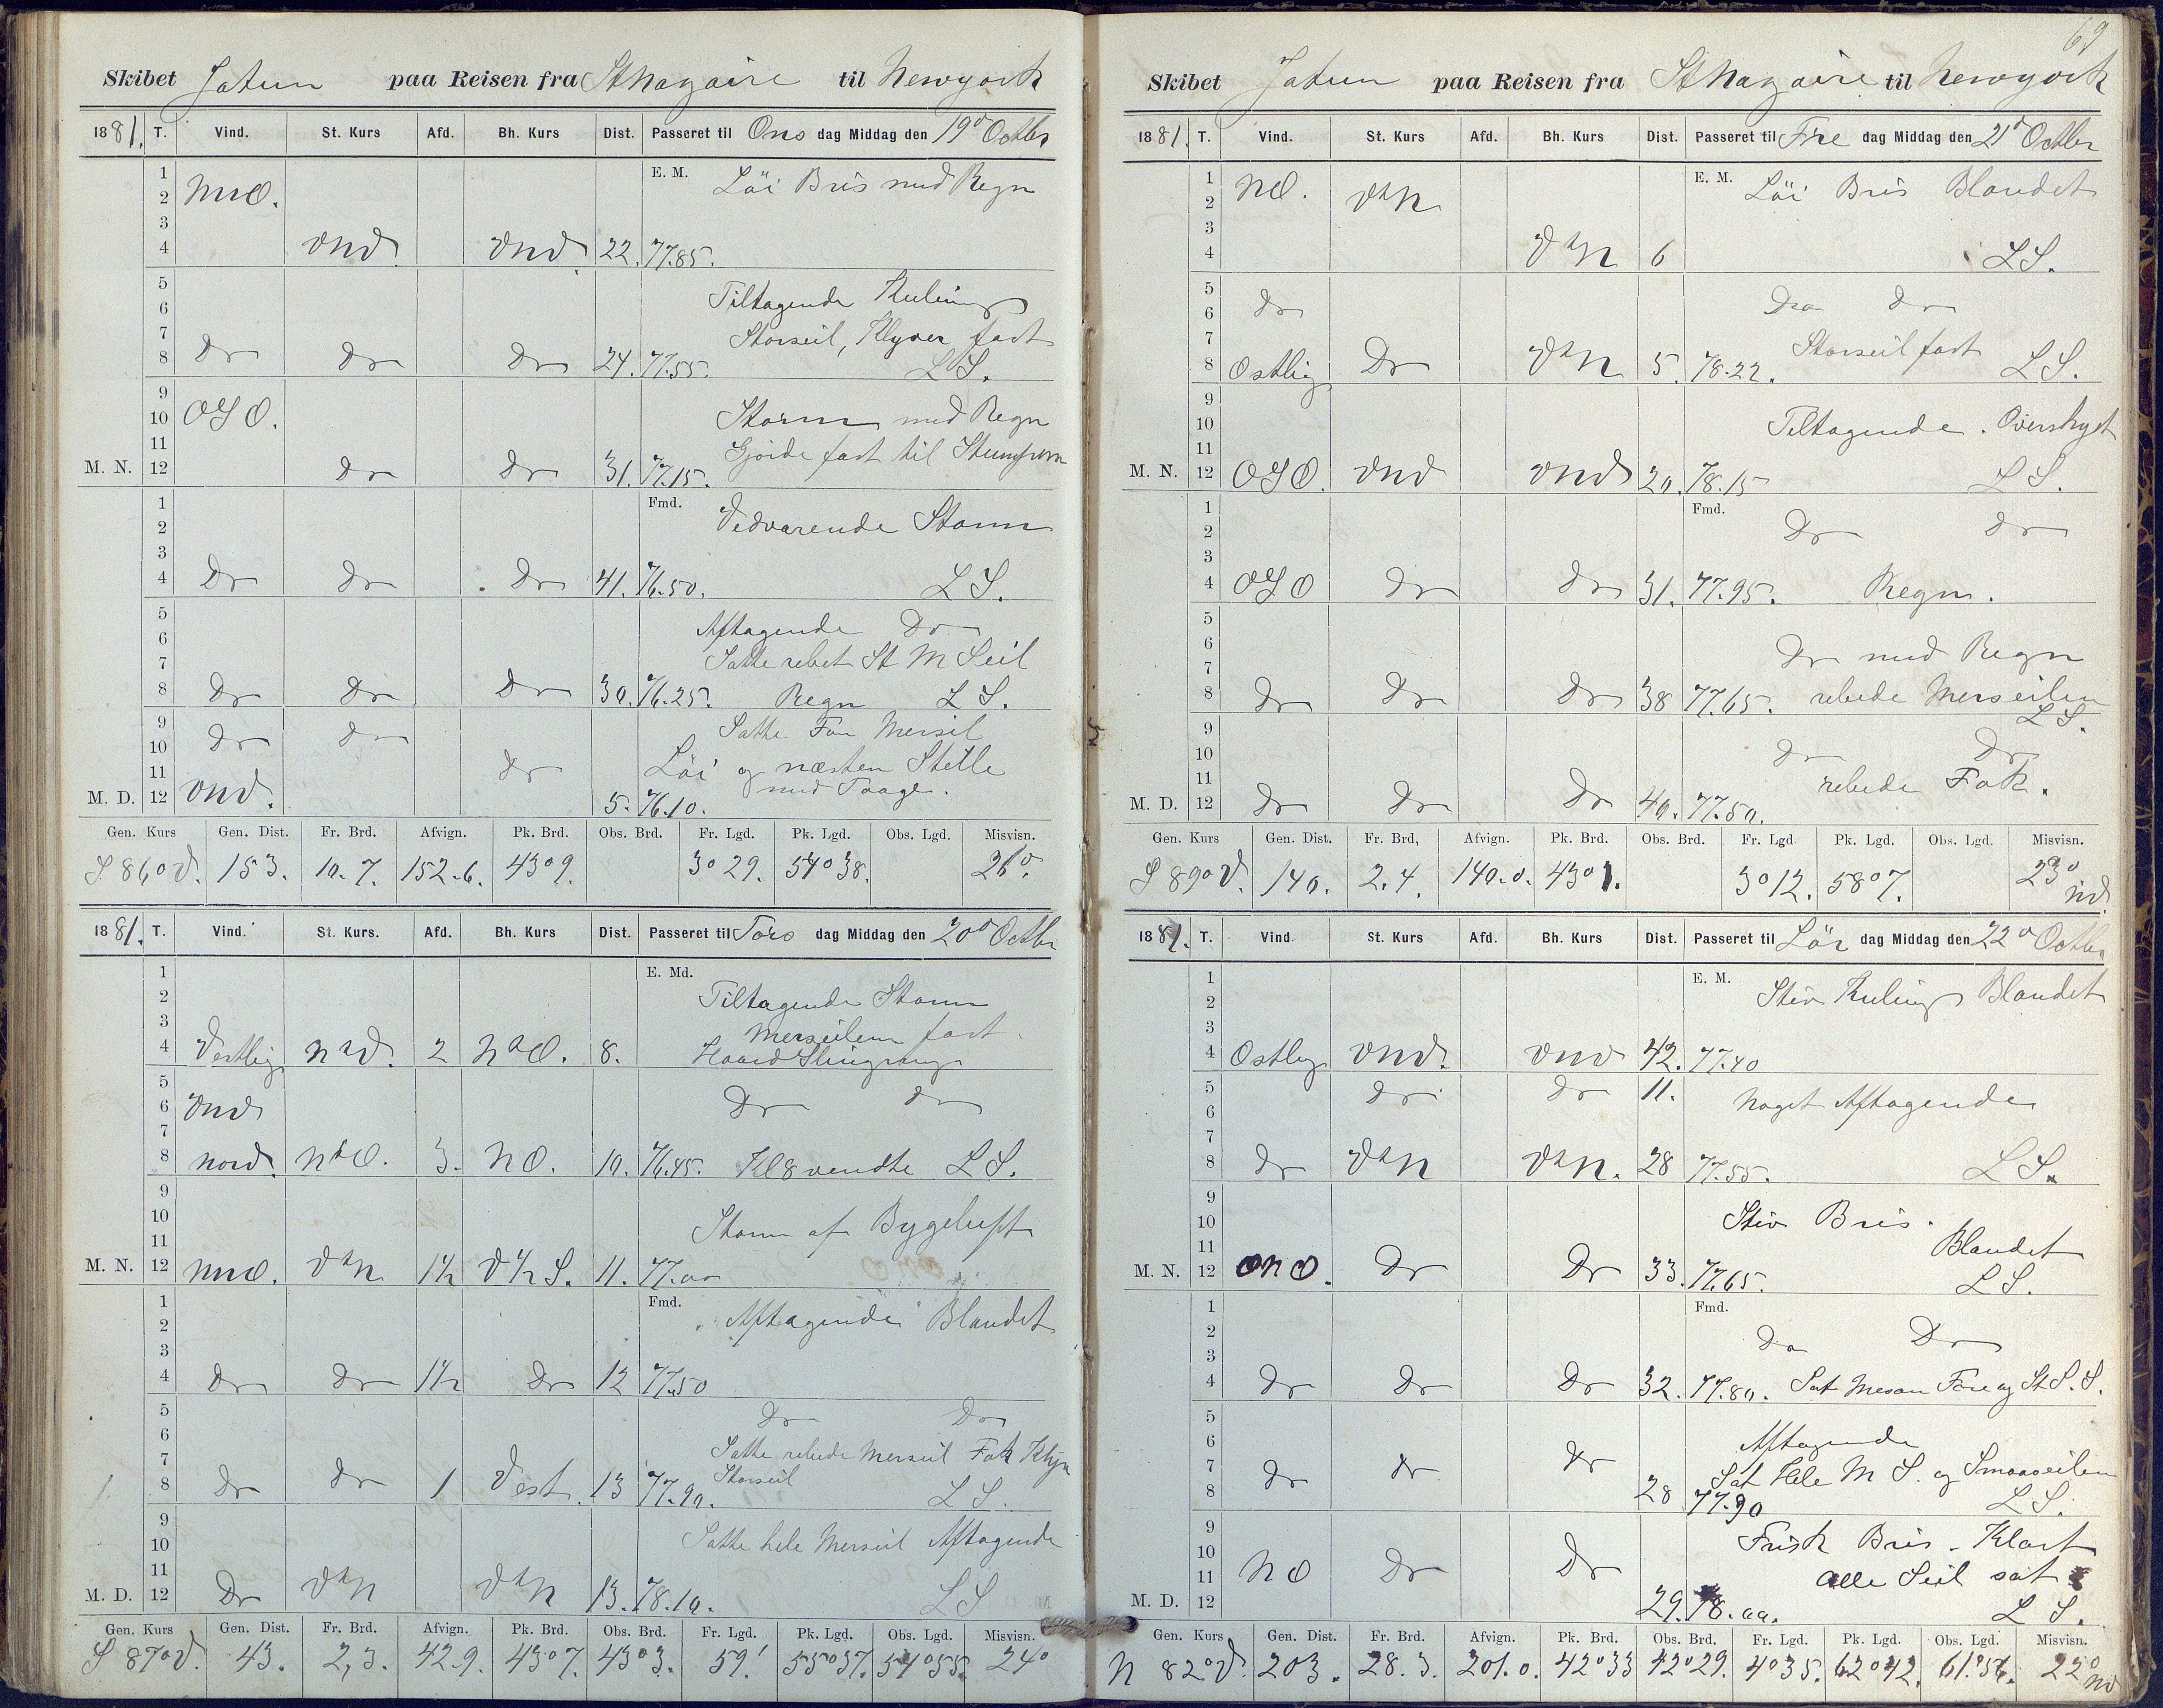 Skibet Jatun paa Reisen fra St Nazaire til Newyork
1881. T. Vind. St. Kurs Afd. Bh. Kurs Dist. Passeret til Ons dag Middag den 19de Octbr
1 E. M. Löi Bris med Regn
2 NNO.
3
4 VNV VNV 22. 77.85.
5 Tiltagende Kuling
6
7 Storseil, Klyver fast
8 Do Do Do 24. 77.55. LS.
9
10 OSO. Storm med Regn
11 Gjorde fast til Stumpern
M. N. 12 Do Do 31. 77.15.
1 Fmd. Vedvarende Storm
2
3
4 Do Do Do 41. 76.50. LS.
5 Aftagende Do
6 Satte rebet St M Seil
7
8 Do Do Do 30. 76.25. Regn LS.
9 Satte For Merseil
10 Do Do
11 Do Löi og næsten Stille
M. D. 12 VNV. 5. 76.10. med Taage.
Gen. Kurs Gen. Dist. Fr. Brd. Afvign. Pk. Brd. Obs. Brd. Fr. Lgd. Pk. Lgd. Obs. Lgd. Misvisn.
S 86° V. 153. 10.7. 152.6. 43°9. 3°29. 54°38. 26°.
1881. T. Vind. St. Kurs. Afd. Bh. Kurs Dist. Passeret til Tors dag Middag den 20de Octbr
1 E. Md.
2 Tiltagende Storm
3 Merseilene fast
4 Vestlig NtV. 2 NtO. 8. Haard Slingring
5
6 VNV Do Do
7
8 Nord. NtO. 3. NO. 10. 76.45. Kl 8 vendte LS.
9
10 Storm af Bygeluft
11
M. N. 12 NNO. VtN 1½ V½S. 11. 77.00
1 Fmd. Aftagende Blandet
2
3
4 Do Do 1½ Do 12 77.50
5 Do Do
6
7 Satte rebede Merseil Fok Klyv
8 Do Do 1 Vest. 13 77.90. Storseil LS.
9
10 Satte hele Merseil Aftagende
11
M. D. 12 Do VtN VtN 13. 78.10. LS
Gen. Kurs Gen. Dist. Fr. Brd. Afvign. Pk. Brd. Obs. Brd. Fr. Lgd. Pk. Lgd. Obs. Lgd. Misvisn.
S 87° V. 43. 2,3. 42.9. 43°7. 43°3. 59' 55°37. 54°55. 24°
69
Skibet Jatun paa Reisen fra St Nazaire til Newyork
1881. T. Vind. St. Kurs Afd. Bh. Kurs Dist. Passeret til Fre dag Middag den 21de Octbr
1 E. M. Löi Bris Blandet
2 NO. VtN
3
4 VtN 6 LS.
5
6 Do Do Do
7 Storseil fast
8 Ostlig Do VtN 5. 78.22. LS.
9
10 Tiltagende. Overskyet
11
M. N. 12 OSO. VNV VNV 20. 78.15 LS.
1 Fmd.
2 Do Do
3
4 OSO Do Do 31. 77.95. Regn.
5
6 Do med Regn
7
8 Do Do Do 38 77.65. rebede Merseilene
9 LS.
10 Do Do
11 rebede Fok.
M. D. 12 Do Do Do 40. 77.50.
Gen. Kurs Gen. Dist. Fr. Brd, Afvign. Pk. Brd. Obs. Brd. Fr. Lgd Pk. Lgd. Obs. Lgd. Misvisn.
S 89° V. 140. 2.4. 140.0. 43°1. 3°12. 58°7. 23° NV
1881. T. Vind St. Kurs Afd. Bh. Kurs Dist. Passeret til Lör dag Middag den 22de Octbr.
1 E. M. Stiv Kuling Blandet
2
3
4 Ostlig VNV. VNV 42. 77.40
5 Do Do 11.
6 Noget Aftagende
7
8 Do VtN VtN. 28 77.55. LS.
9
10 Stiv Bris.
11 Blandet
M. N. 12 ONO. Do Do 33. 77.65. LS.
1 Fmd.
2 Do Do
3
4 Do Do Do 32. 77.80. Sat Mesan Fore og St S. S.
5
6 Aftagende
7 Do Do Do Sat Hele M S. og Smaaseilene
8 28 77.90 LS.
9
10 Frisk Bris. Klart
11 NO Do Do alle Seil sat
M. D. 12 29. 78.00. LS.
Gen. Kurs Gen. Dist. Fr. Brd. Afvign. Pk. Brd. Obs. Brd. Fr. Lgd. Pk. Lgd. Obs. Lgd. Misvisn.
N 82° V. 203. 28.3. 201.0. 42°33 42°29. 4°35. 62°42. 61°56. 22° NV